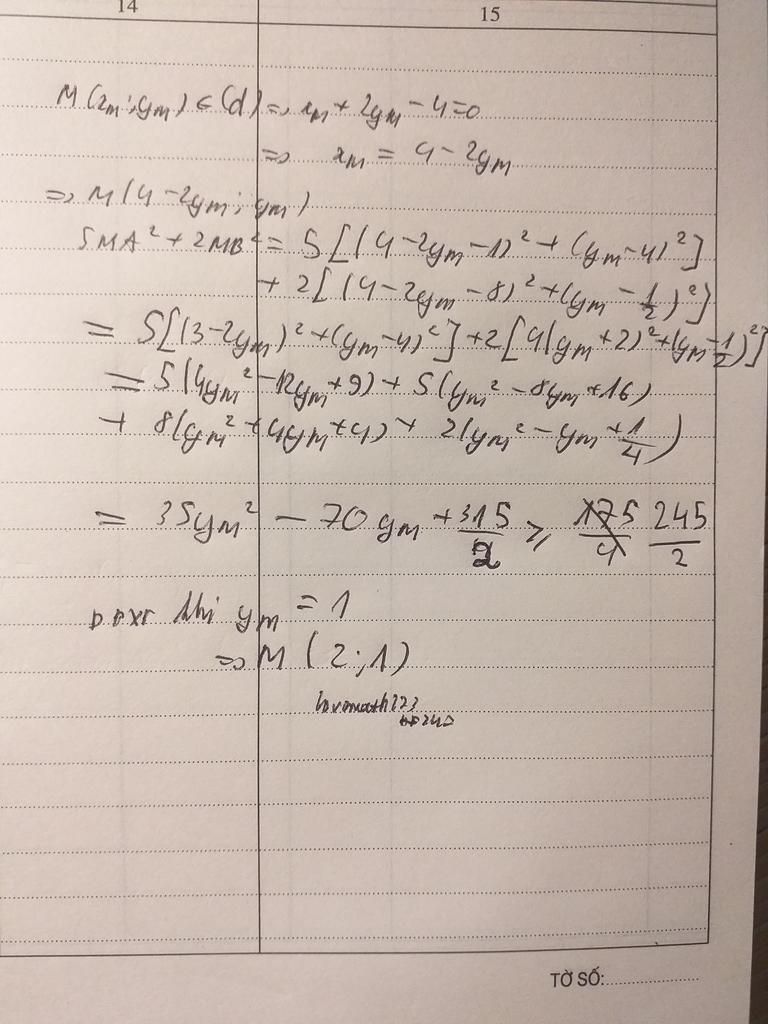 14 15
M(x_M; y_M) ∈ (d) => x_M + 2y_M - 4 = 0
=> x_M = 4 - 2y_M
=> M(4 - 2y_M; y_M)
5MA² + 2MB² = 5[(4 - 2y_M - 1)² + (y_M - 4)²]
+ 2[(4 - 2y_M - 8)² + (y_M - 1/2)²]
= 5[(3 - 2y_M)² + (y_M - 4)²] + 2[4(y_M + 2)² + (y_M - 1/2)²]
= 5(4y_M² - 12y_M + 9) + 5(y_M² - 8y_M + 16)
+ 8(y_M² + 4y_M + 4) + 2(y_M² - y_M + 1/4)
= 35y_M² - 70y_M + 315/2 ≥ 245/2
khi y_M = 1
=> M(2; 1)
TỜ SỐ: